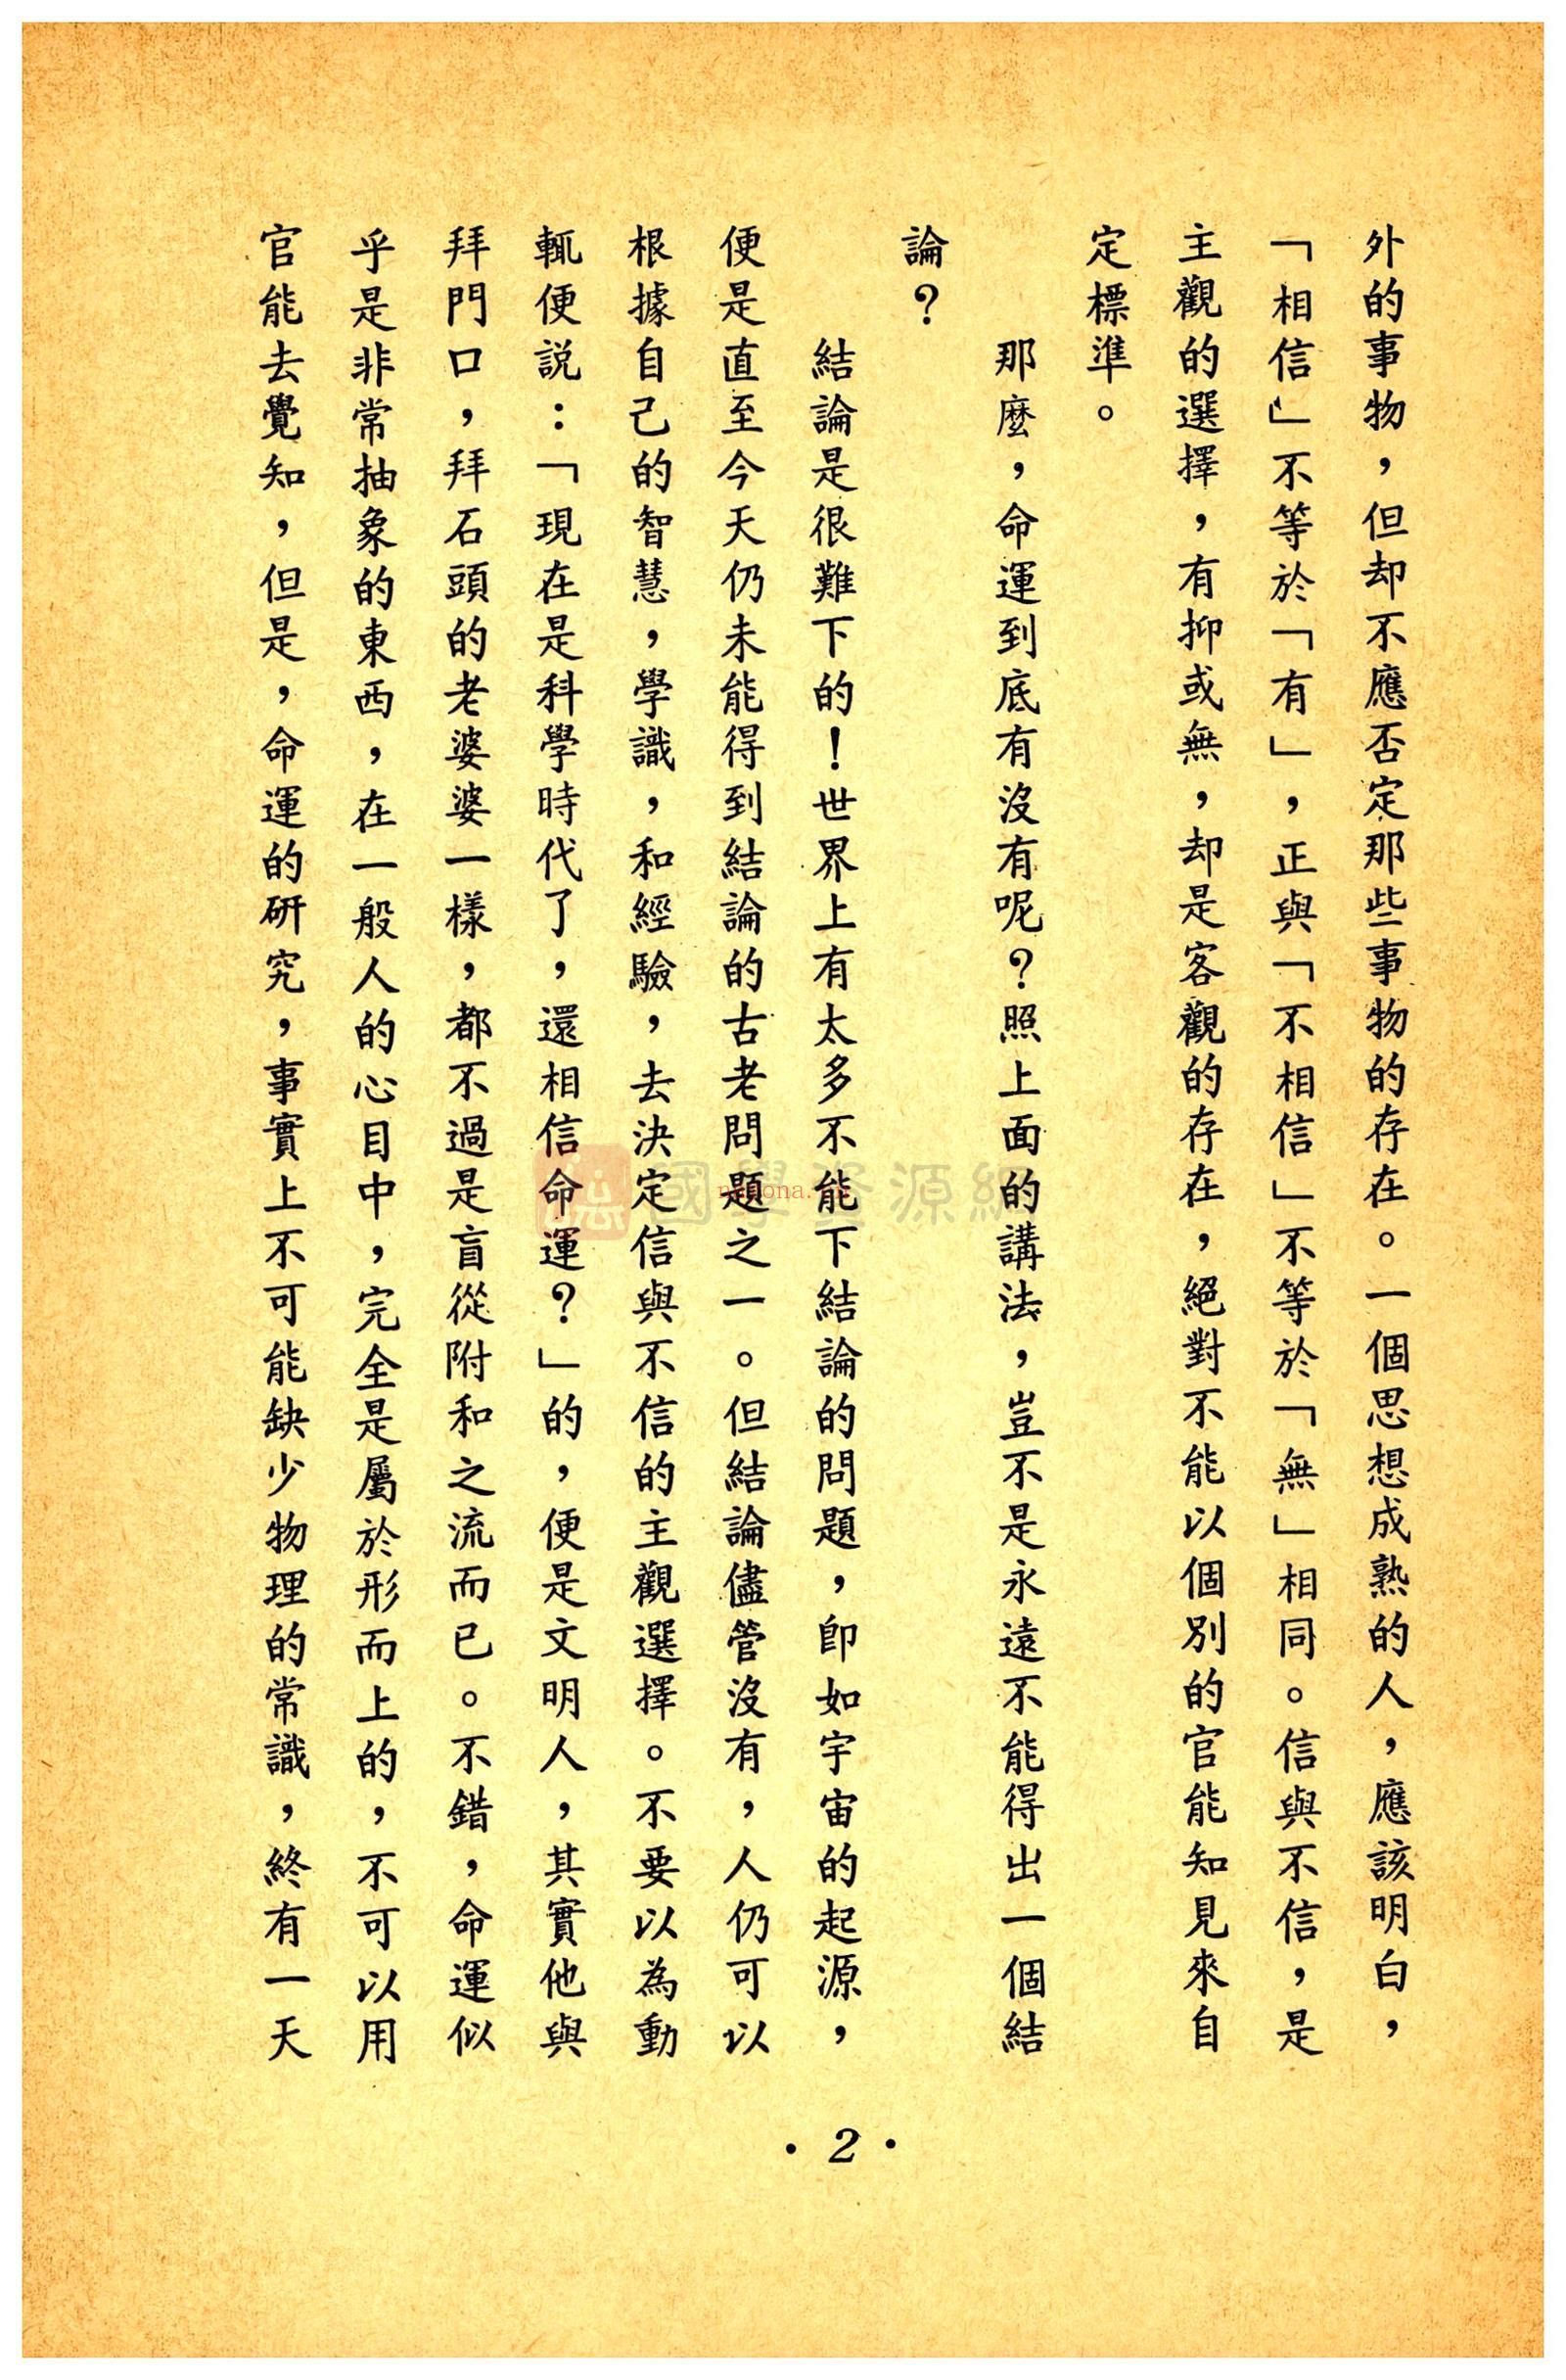 外的事物，但却不應否定那些事物的存在。一個思想成熟的人，應該明白，
「相信」不等於「有」，正與「不相信」不等於「無」相同。信與不信，是
主觀的選擇，有抑或無，却是客觀的存在，絕對不能以個別的官能知見來自
定標準。
那麼，命運到底有沒有呢？照上面的講法，豈不是永遠不能得出一個結
論？
結論是很難下的！世界上有太多不能下結論的問題，卽如宇宙的起源，
便是直至今天仍未能得到結論的古老問題之一。但結論儘管沒有，人仍可以
根據自己的智慧，學識，和經驗，去決定信與不信的主觀選擇。不要以為動
輒便説：「現在是科學時代了，還相信命運？」的，便是文明人，其實他與
拜門口，拜石頭的老婆婆一樣，都不過是盲從附和之流而已。不錯，命運似
乎是非常抽象的東西，在一般人的心目中，完全是屬於形而上的，不可以用
官能去覺知，但是，命運的研究，事實上不可能缺少物理的常識，終有一天
國學資源網
·2·